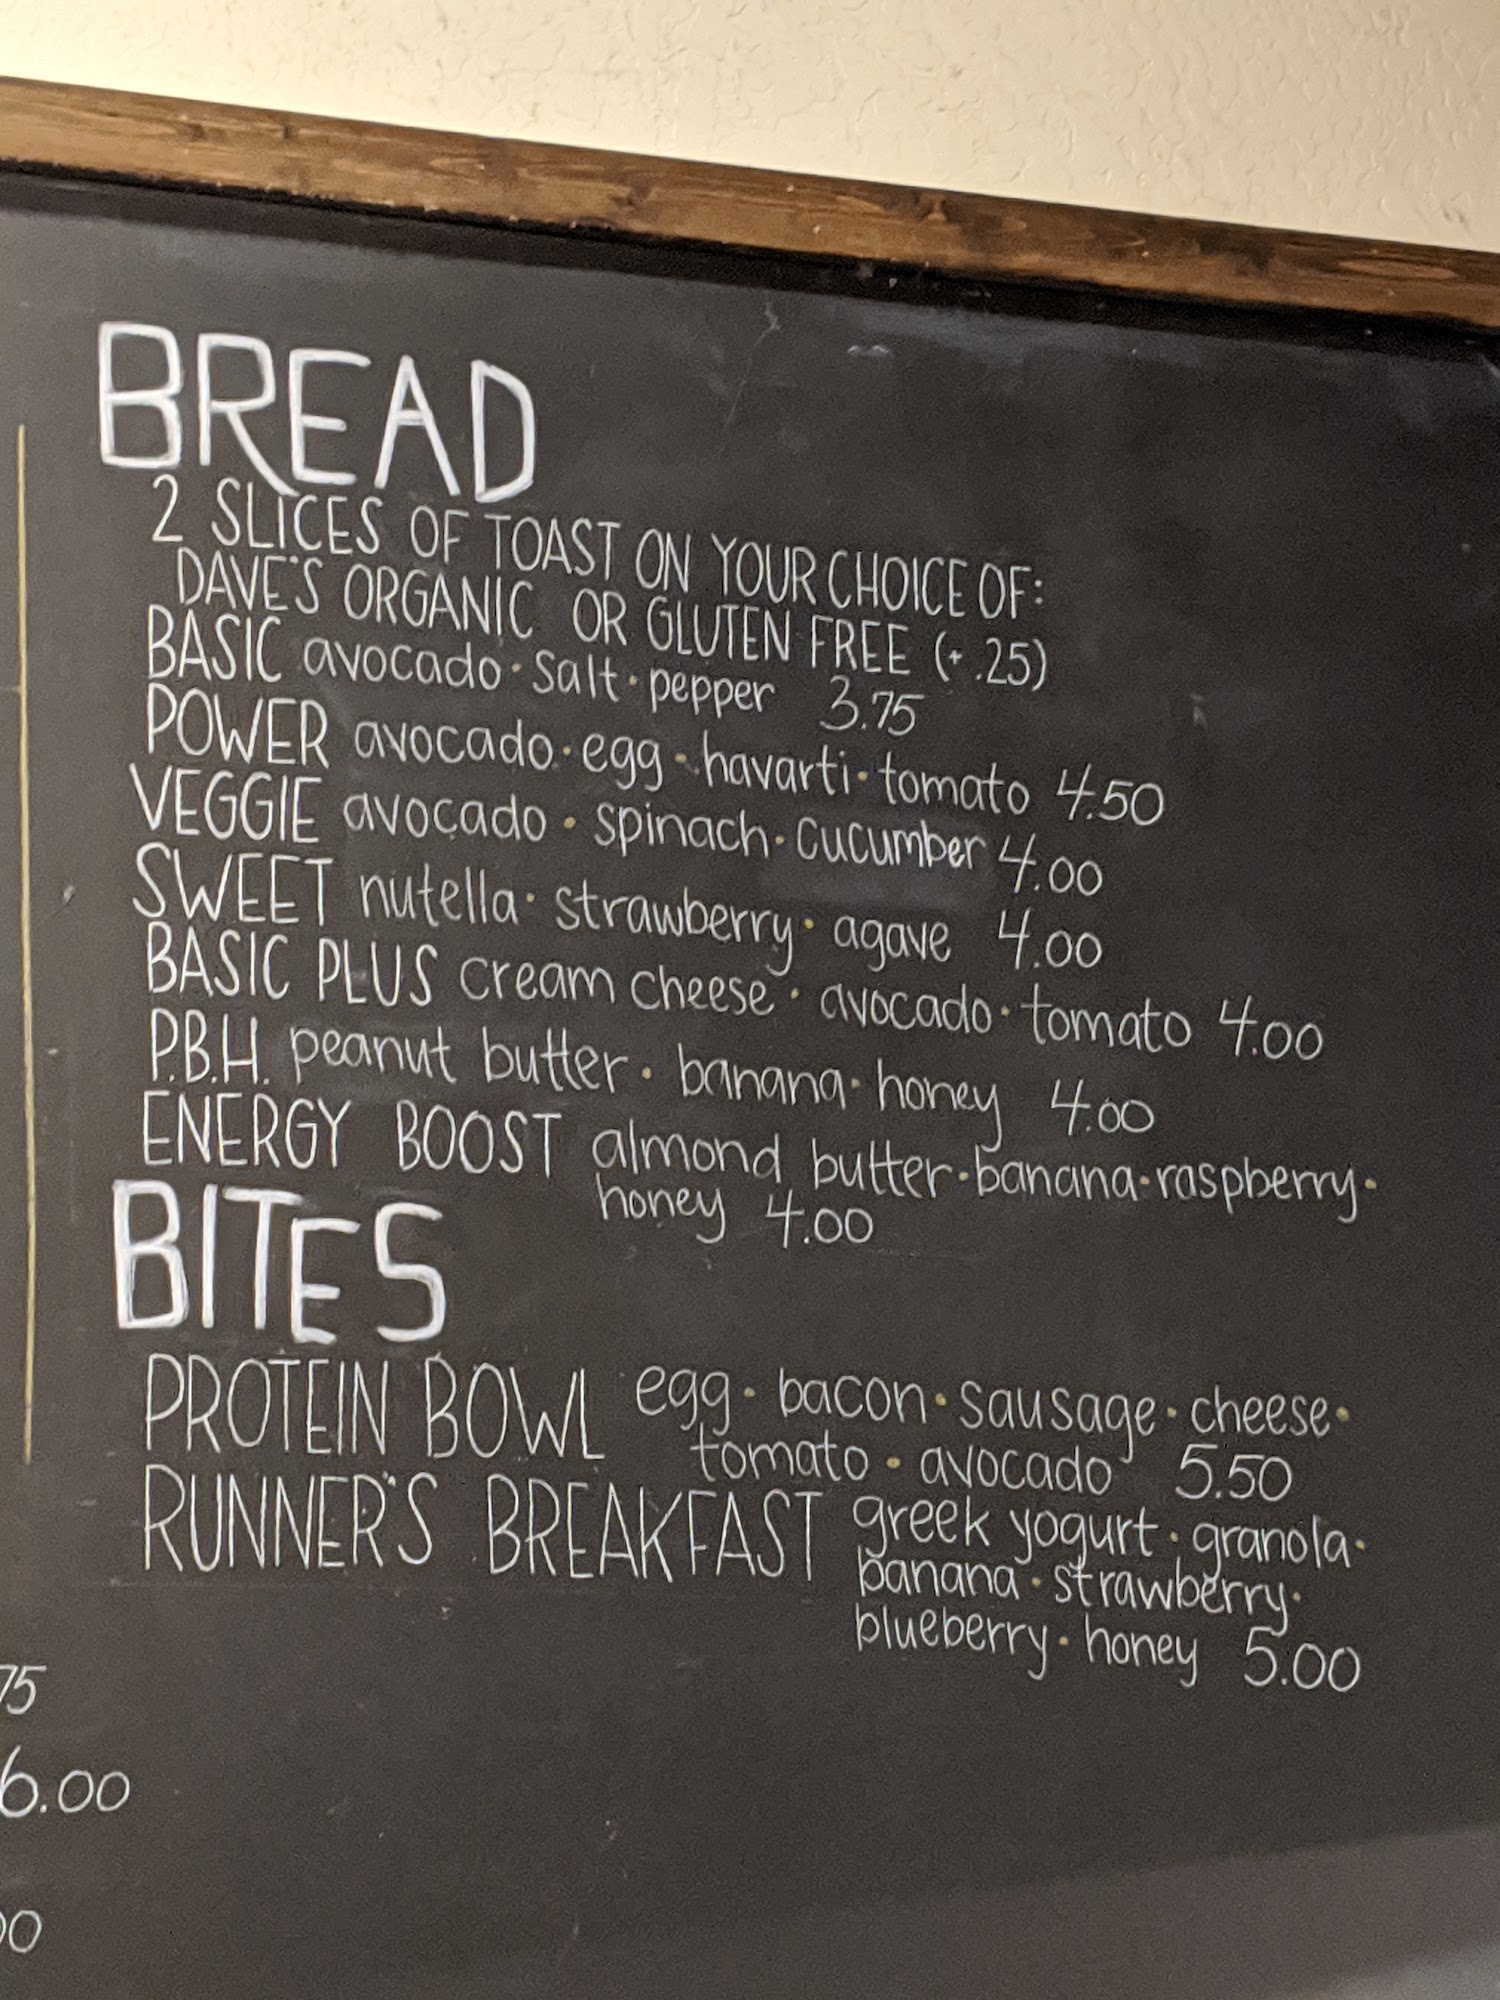 BREAD
2 SLICES OF TOAST ON YOUR CHOICE OF:
DAVE'S ORGANIC OR GLUTEN FREE (+ .25)
BASIC avocado · salt · pepper 3.75
POWER avocado · egg · havarti · tomato 4.50
VEGGIE avocado · spinach · cucumber 4.00
SWEET nutella · strawberry · agave 4.00
BASIC PLUS cream cheese · avocado · tomato 4.00
P.B.H. peanut butter · banana · honey 4.00
ENERGY BOOST almond butter · banana · raspberry ·
honey 4.00
BITES
PROTEIN BOWL egg · bacon · sausage · cheese ·
tomato · avocado 5.50
RUNNER'S BREAKFAST greek yogurt · granola ·
banana · strawberry ·
blueberry · honey 5.00
75
6.00
00